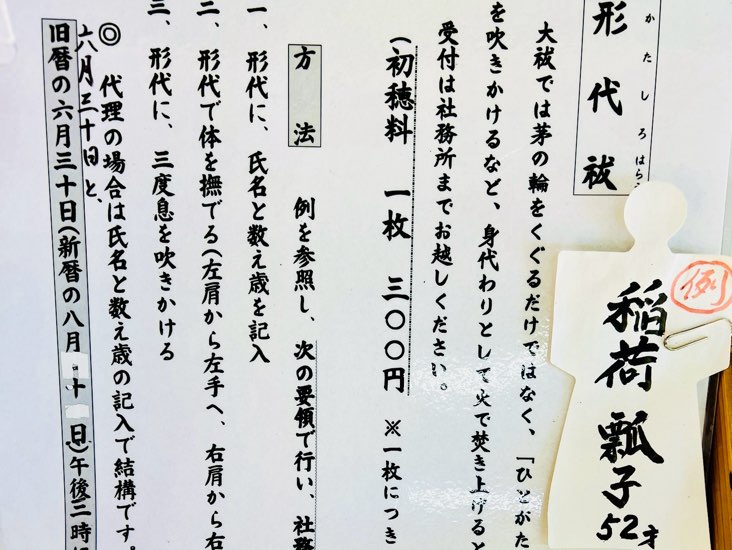 形代祓
かたしろはら
大祓では茅の輪をくぐるだけではなく、「ひとがた
を吹きかけるなど、身代わりとして火で焚き上げると
受付は社務所までお越しください。
(初穂料 一枚 三〇〇円 ※一枚につき
方法 例を参照し、次の要領で行い、社務
一、形代に、氏名と数え歳を記入
二、形代で体を撫でる(左肩から左手へ、右肩から右
三、形代に、三度息を吹きかける
◎ 代理の場合は氏名と数え歳の記入で結構です。
六月三十日と、
旧暦の六月三十日(新暦の八月 十 日)午後二時
例
稲荷 瓢子
52才